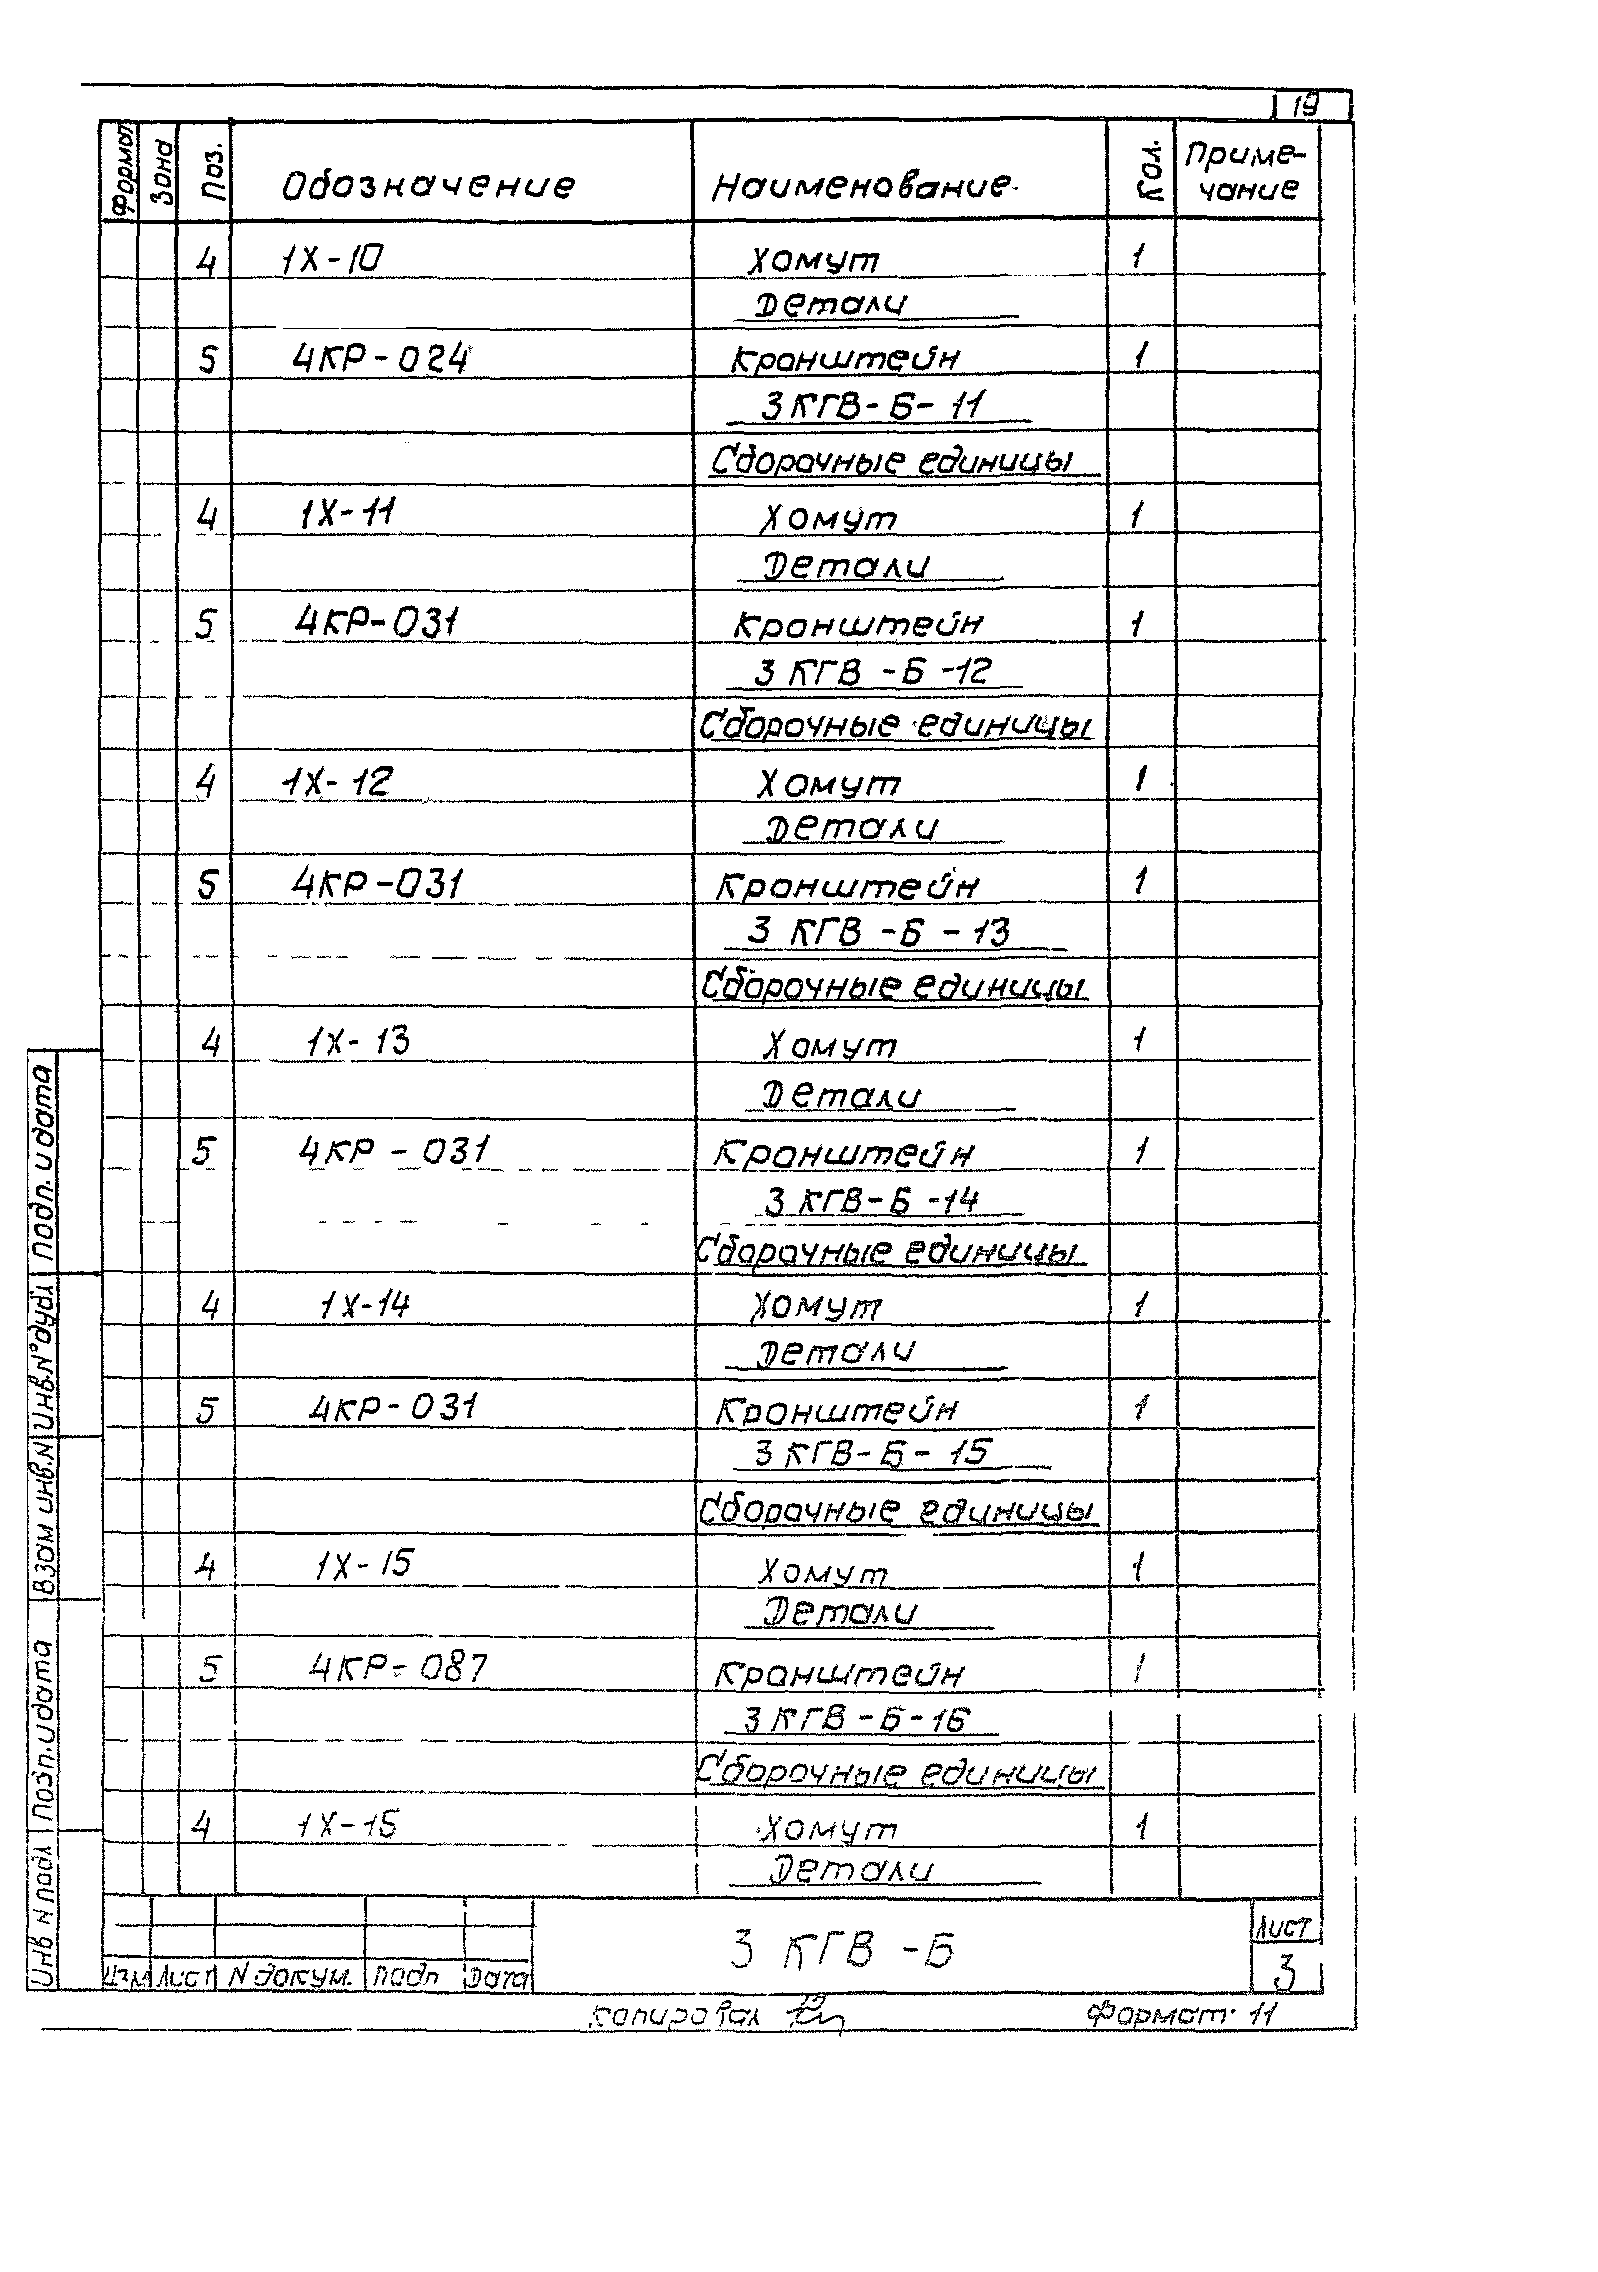 19
Формат Зона Поз. Обозначение Наименование Кол. Приме-
чание
4 1Х-10 Хомут 1
Детали
5 4КР-024 Кронштейн 1
3КГВ-Б-11
Сборочные единицы
4 1Х-11 Хомут 1
Детали
5 4КР-031 Кронштейн 1
3 КГВ -Б -12
Сборочные единицы
4 1Х-12 Хомут 1
Детали
5 4КР-031 Кронштейн 1
3 КГВ -Б - 13
Сборочные единицы
4 1Х-13 Хомут 1
Детали
5 4КР - 031 Кронштейн 1
3 КГВ-Б -14
Сборочные единицы
4 1Х-14 Хомут 1
Детали
5 4КР-031 Кронштейн 1
3 КГВ-Б-15
Сборочные единицы
4 1Х-15 Хомут 1
Детали
5 4КР-087 Кронштейн 1
3 КГВ-Б-16
Сборочные единицы
4 1Х-15 Хомут 1
Детали
Подп. и дата
Инв.N°дубл
Взам инв.N
Подп. и дата
Инв N подл
Изм Лист N докум. Подп Дата
3 КГВ -Б
Лист
3
Копировал
Формат 11